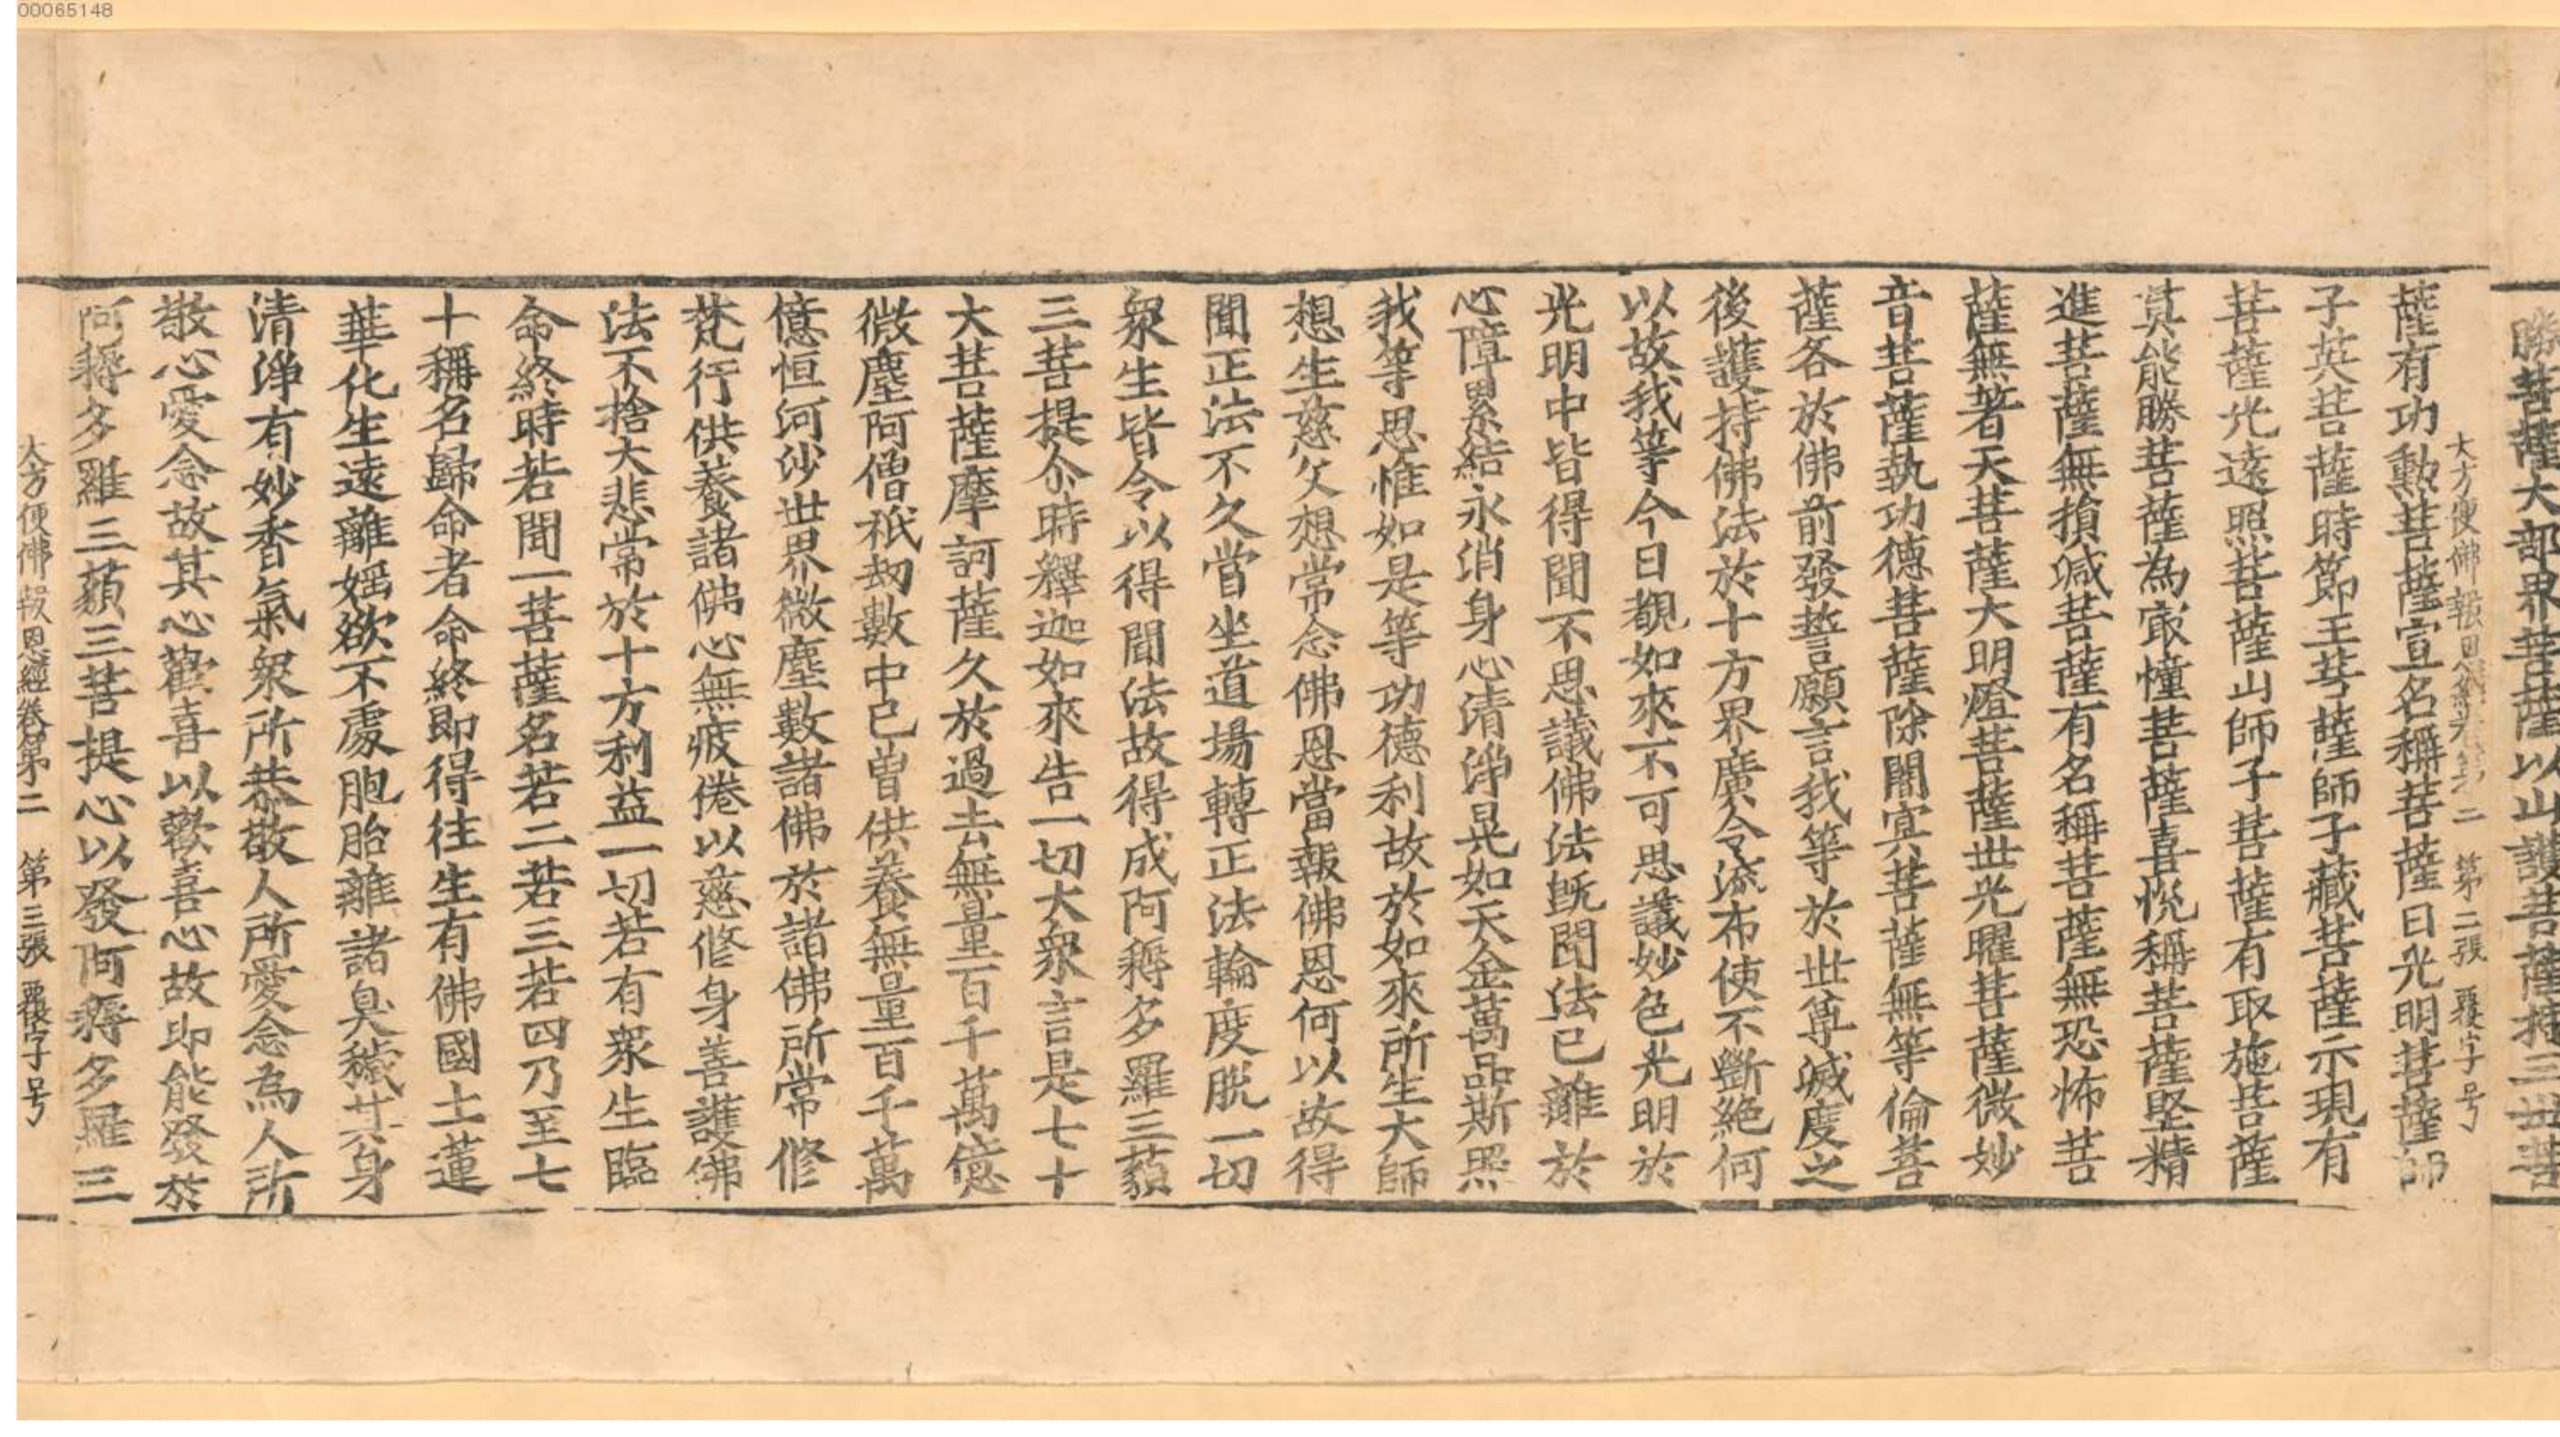 00065148
勝菩薩大部界菩薩以山護菩薩持三世菩
大方便佛報恩經卷第二 第二張 覆字号
薩有功勳菩薩宣名稱菩薩日光明菩薩師
子英菩薩時節王菩薩師子藏菩薩示現有
菩薩光遠照菩薩山師子菩薩有取施菩薩
莫能勝菩薩為㝡幢菩薩喜悅稱菩薩堅精
進菩薩無損減菩薩有名稱菩薩無恐怖菩
薩無著天菩薩大明燈菩薩世光曜菩薩微妙
音菩薩執功德菩薩除闇㝠菩薩無等倫菩
薩各於佛前發誓願言我等於世尊滅度之
後護持佛法於十方界廣令流布使不斷絕何
以故我等今日覩如來不可思議妙色光明於
光明中皆得聞不思議佛法既聞法已離於
心障累結永消身心清淨晃如天金萬品斯照
我等思惟如是等功德利故於如來所生大師
想生慈父想常念佛恩當報佛恩何以故得
聞正法不久當坐道場轉正法輪度脫一切
衆生皆令以得聞法故得成阿耨多羅三藐
三菩提尒時釋迦如來告一切大衆言是七十
大菩薩摩訶薩久於過去無量百千萬億
微塵阿僧祇劫數中已曾供養無量百千萬
億恒河沙世界微塵數諸佛於諸佛所常修
梵行供養諸佛心無疲倦以慈修身善護佛
法不捨大悲常於十方利益一切若有衆生臨
命終時若聞一菩薩名若二若三若四乃至七
十稱名歸命者命終即得往生有佛國土蓮
華化生遠離婬欲不處胞胎離諸臭穢其身
清淨有妙香氣衆所恭敬人所愛念為人所
敬心愛念故其心歡喜以歡喜心故即能發於
阿耨多羅三藐三菩提心以發阿耨多羅三
大方便佛報恩經卷第二 第三張 覆字号